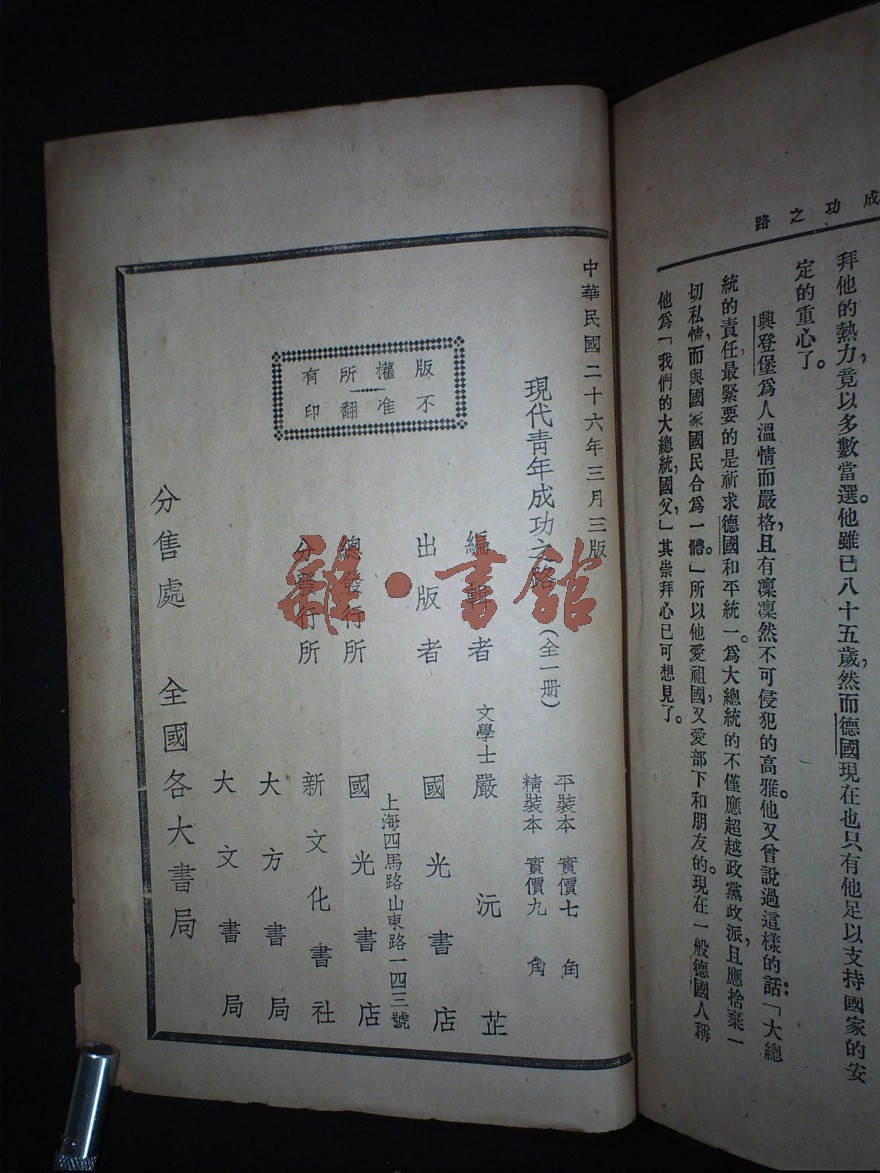 成功之路
拜他的熱力，竟以多數當選。他雖已八十五歲，然而德國現在也只有他足以支持國家的安
定的重心了。
興登堡為人溫情而嚴格，且有凜凜然不可侵犯的高雅。他又曾說過這樣的話：「大總
統的責任，最緊要的是祈求德國和平統一。為大總統的不僅應超越政黨政派，且應捨棄一
切私情，而與國家國民合為一體。」所以他愛祖國，又愛部下和朋友的。現在一般德國人稱
他為「我們的大總統，國父，」其崇拜心已可想見了。
中華民國二十六年三月三版
版權所有
不准翻印
現代青年成功之路（全一册）
平裝本 實價七角
精裝本 實價九角
編著者 文學士 嚴沅芷
出版者 國光書店
上海四馬路山東路一四三號
總發行所 國光書店
分發行所 新文化書社
大方書局
大文書局
分售處 全國各大書局
雜·書館